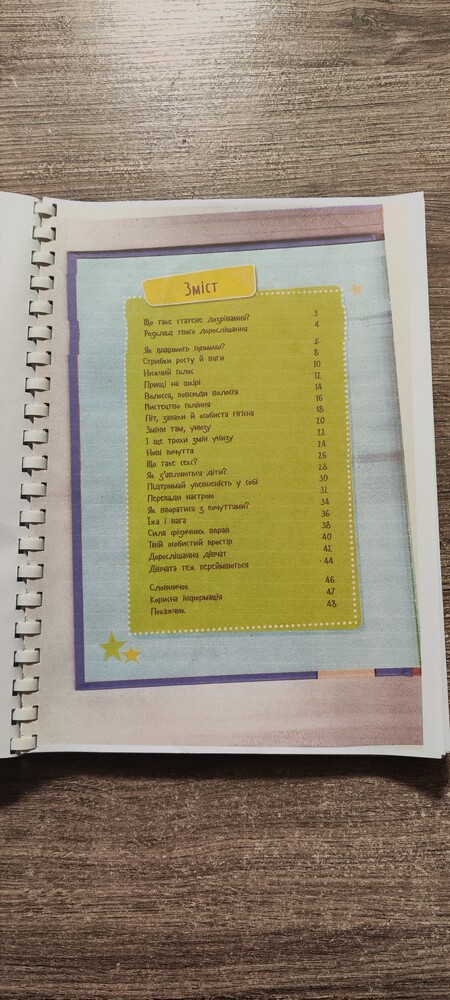 Зміст
Що таке статеве дозрівання? 3
Розклад твого дорослішання 4
Як працюють гормони? 6
Стрибки росту й ваги 8
Нижчий голос 10
Прищі на шкірі 12
Волосся, повсюди волосся 14
Мистецтво гоління 16
Піт, запахи й особиста гігієна 18
Зміни там, унизу 20
І ще трохи змін унизу 22
Нові почуття 24
Що таке секс? 26
Як з'являються діти? 28
Підтримай упевненість у собі 30
Перепади настрою 32
Як впоратися з почуттями? 34
Їжа і вага 36
Сила фізичних вправ 38
Твій особистий простір 40
Дорослішання дівчат 42
Дівчата теж переймаються 44
Словничок 46
Корисна інформація 47
Покажчик 48